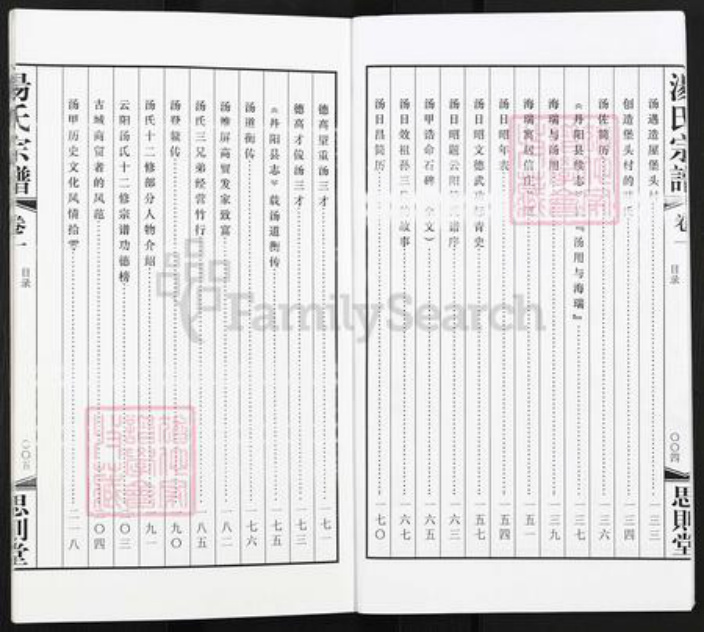 湯氏宗譜 卷一 目录 〇〇四 思則堂
汤遇造屋堡头村 一三三
创造堡头村的 一三四
汤佐简历 一三六
《丹阳县续志》 『汤用与海瑞』 一三七
海瑞与汤用 一三九
海瑞寓居信 一五一
汤日昭年表 一五四
汤日昭文德武 青史 一五七
汤日昭题云阳 谱序 一六三
汤甲诰命石碑 文） 一六五
汤日效祖孙三 故事 一六七
汤日昌简历 一七〇
德高望重汤三才 一七一
德高才俊汤三才 一七三
《丹阳县志》载汤道衡传 一七五
汤道衡传 一七六
汤唯屏商贸发家致富 一八二
汤氏三兄弟经营竹行 一八五
汤登鼇传 一九〇
汤氏十二修部分人物介绍 一九一
云阳汤氏十二修宗谱功德榜 〇三
古城商贸者的风范 〇四
汤甲历史文化风情拾零 二一八
湯氏宗譜 卷一 目录 〇〇五 思則堂
FamilySearch